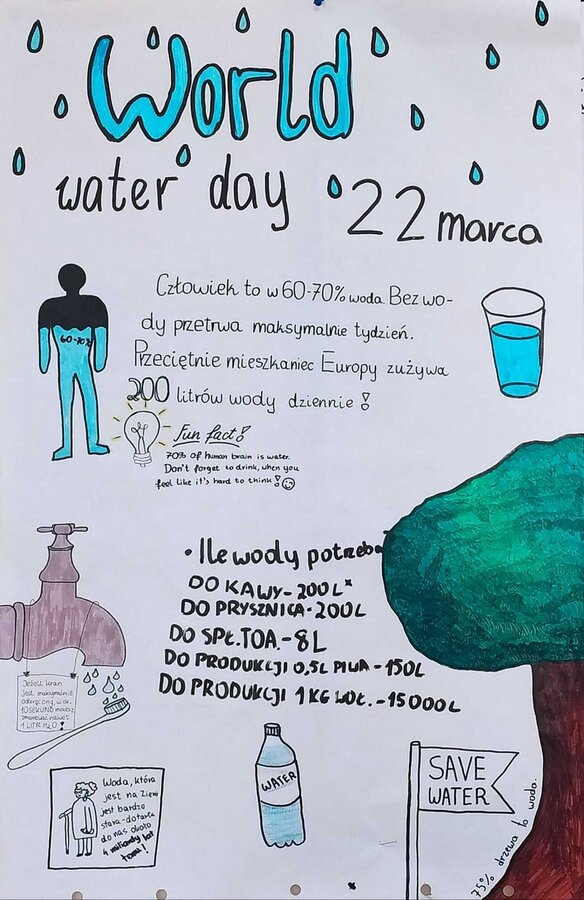 World
water day 22 marca
Człowiek to w 60-70% woda. Bez wo-
dy przetrwa maksymalnie tydzień.
Przeciętnie mieszkaniec Europy zużywa
200 litrów wody dziennie!
60-70%
Fun fact!
70% of human brain is water.
Don't forget to drink, when you
feel like it's hard to think!
• Ile wody potrzeba
DO KAWY-200L*
DO PRYSZNICA-200L
DO SPŁ.TOA.-8L
DO PRODUKCJI 0,5L PIWA-150L
DO PRODUKCJI 1KG WOŁ.-15000L
Jeżeli kran
jest maksymalnie
odkręcony, w ok.
10 SEKUND możesz
zmarnować nawet
1 LITR H₂O!
Woda, która
jest na Ziemi
jest bardzo
stara-dotarła
do nas około
4 miliardy lat
temu!
WATER
SAVE
WATER
75% drzewa to woda.